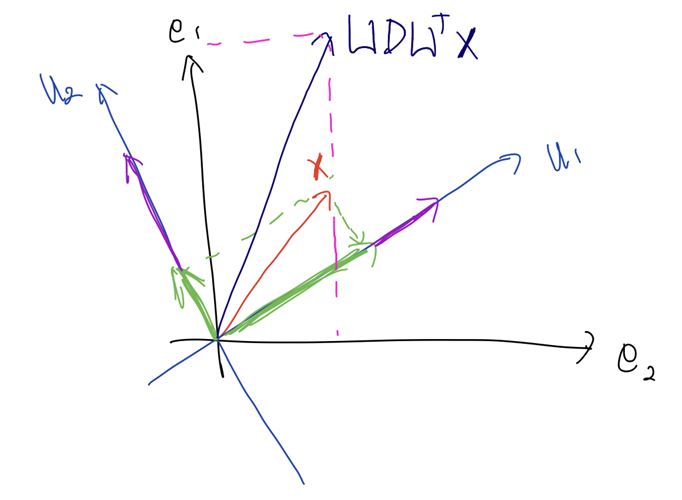 e₁
UDUᵀx
u₂
x
u₁
e₂